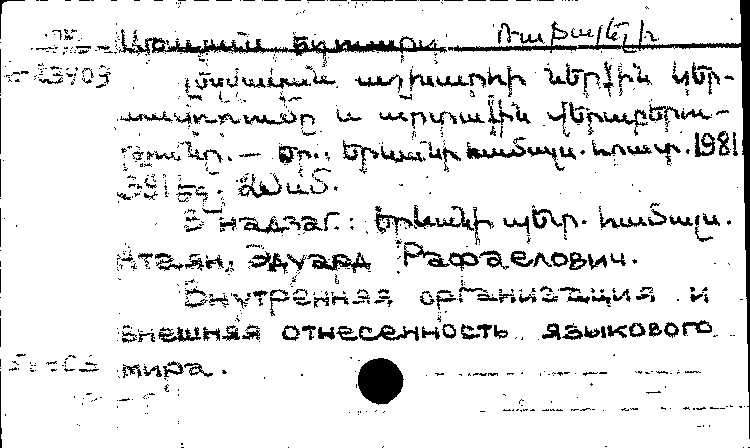 Աթայան Էդուարդ Ռաֆայելի
23403
Լեզվական աշխարհի ներքին կեր-
տավորումը և արտաքին վերաբերու-
թյունը. — Եր.: Երևանի համալս. հրատ. 1981
391 էջ; 20սմ.
В надзаг.: Երևանի պետ. համալս.
Атаян, Эдуард Рафаелович.
Внутренняя организация и
внешняя отнесенность языкового
мира.